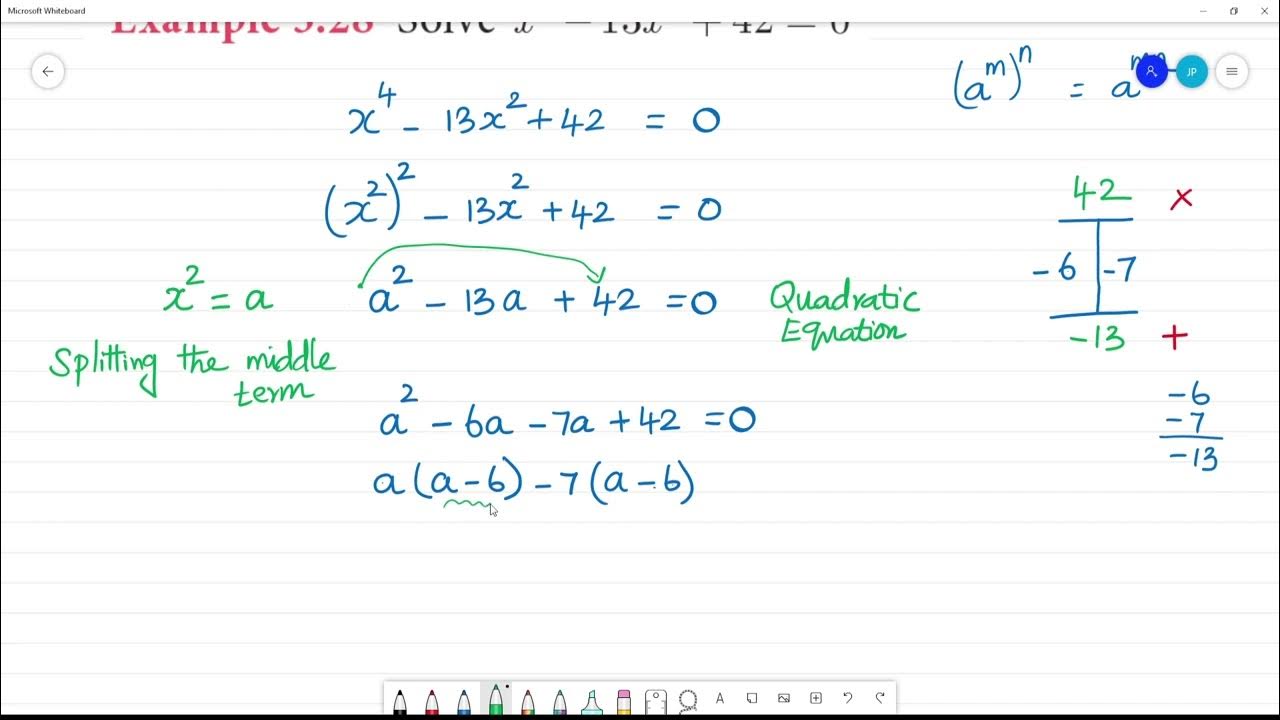 Microsoft Whiteboard
Example 3.28 Solve x⁴ − 13x² + 42 = 0
JP
(aᵐ)ⁿ = aᵐⁿ
x⁴ − 13x² + 42 = 0
(x²)² − 13x² + 42 = 0
x² = a
a² − 13a + 42 = 0
Quadratic
Equation
Splitting the middle
term
a² − 6a − 7a + 42 = 0
a(a − 6) − 7(a − 6)
42 ×
−6 | −7
−13 +
−6
−7
−13
A